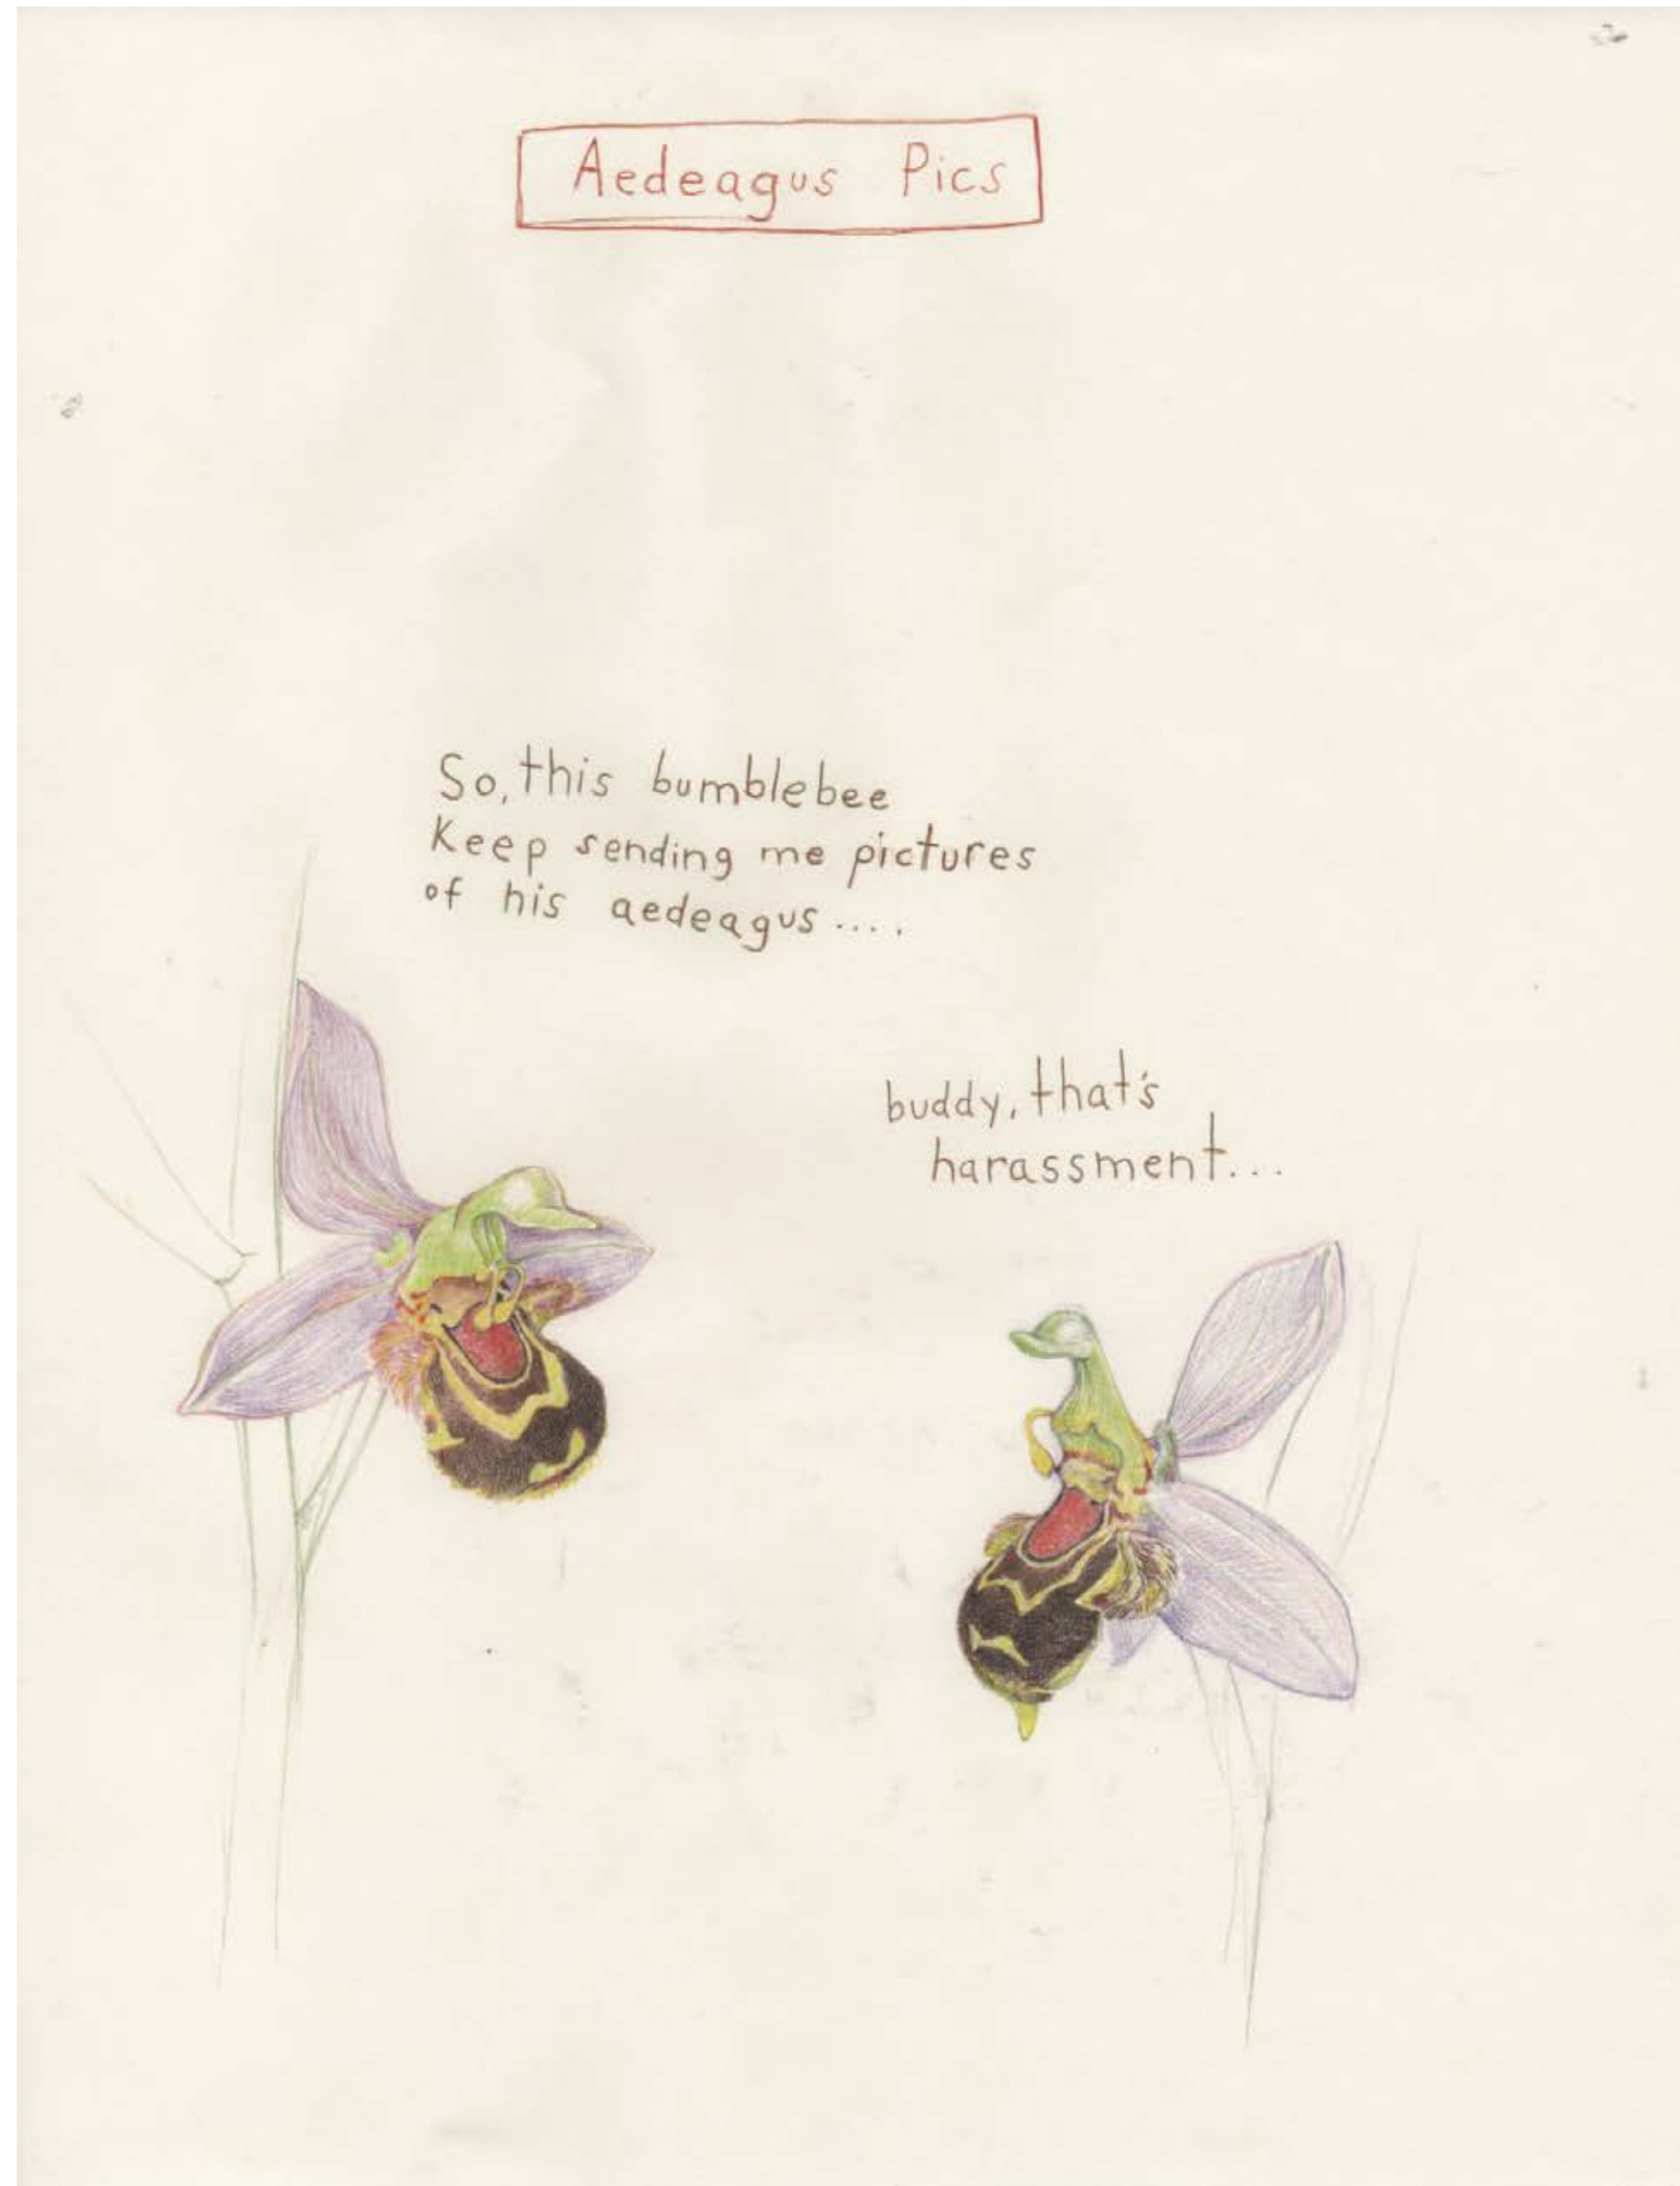 Aedeagus Pics
So, this bumblebee
Keep sending me pictures
of his aedeagus....
buddy, that's
harassment...